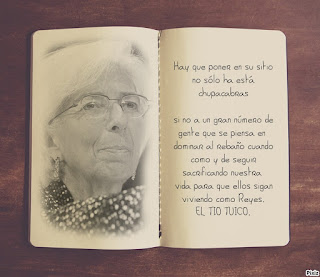 Hay que poner en su sitio
no sólo ha está
chupacabras
si no a un gran número de
gente que se piensa en
dominar al rebaño cuando
como y de seguir
sacrificando nuestra
vida para que ellos sigan
viviendo como Reyes.
EL TIO TUICO.